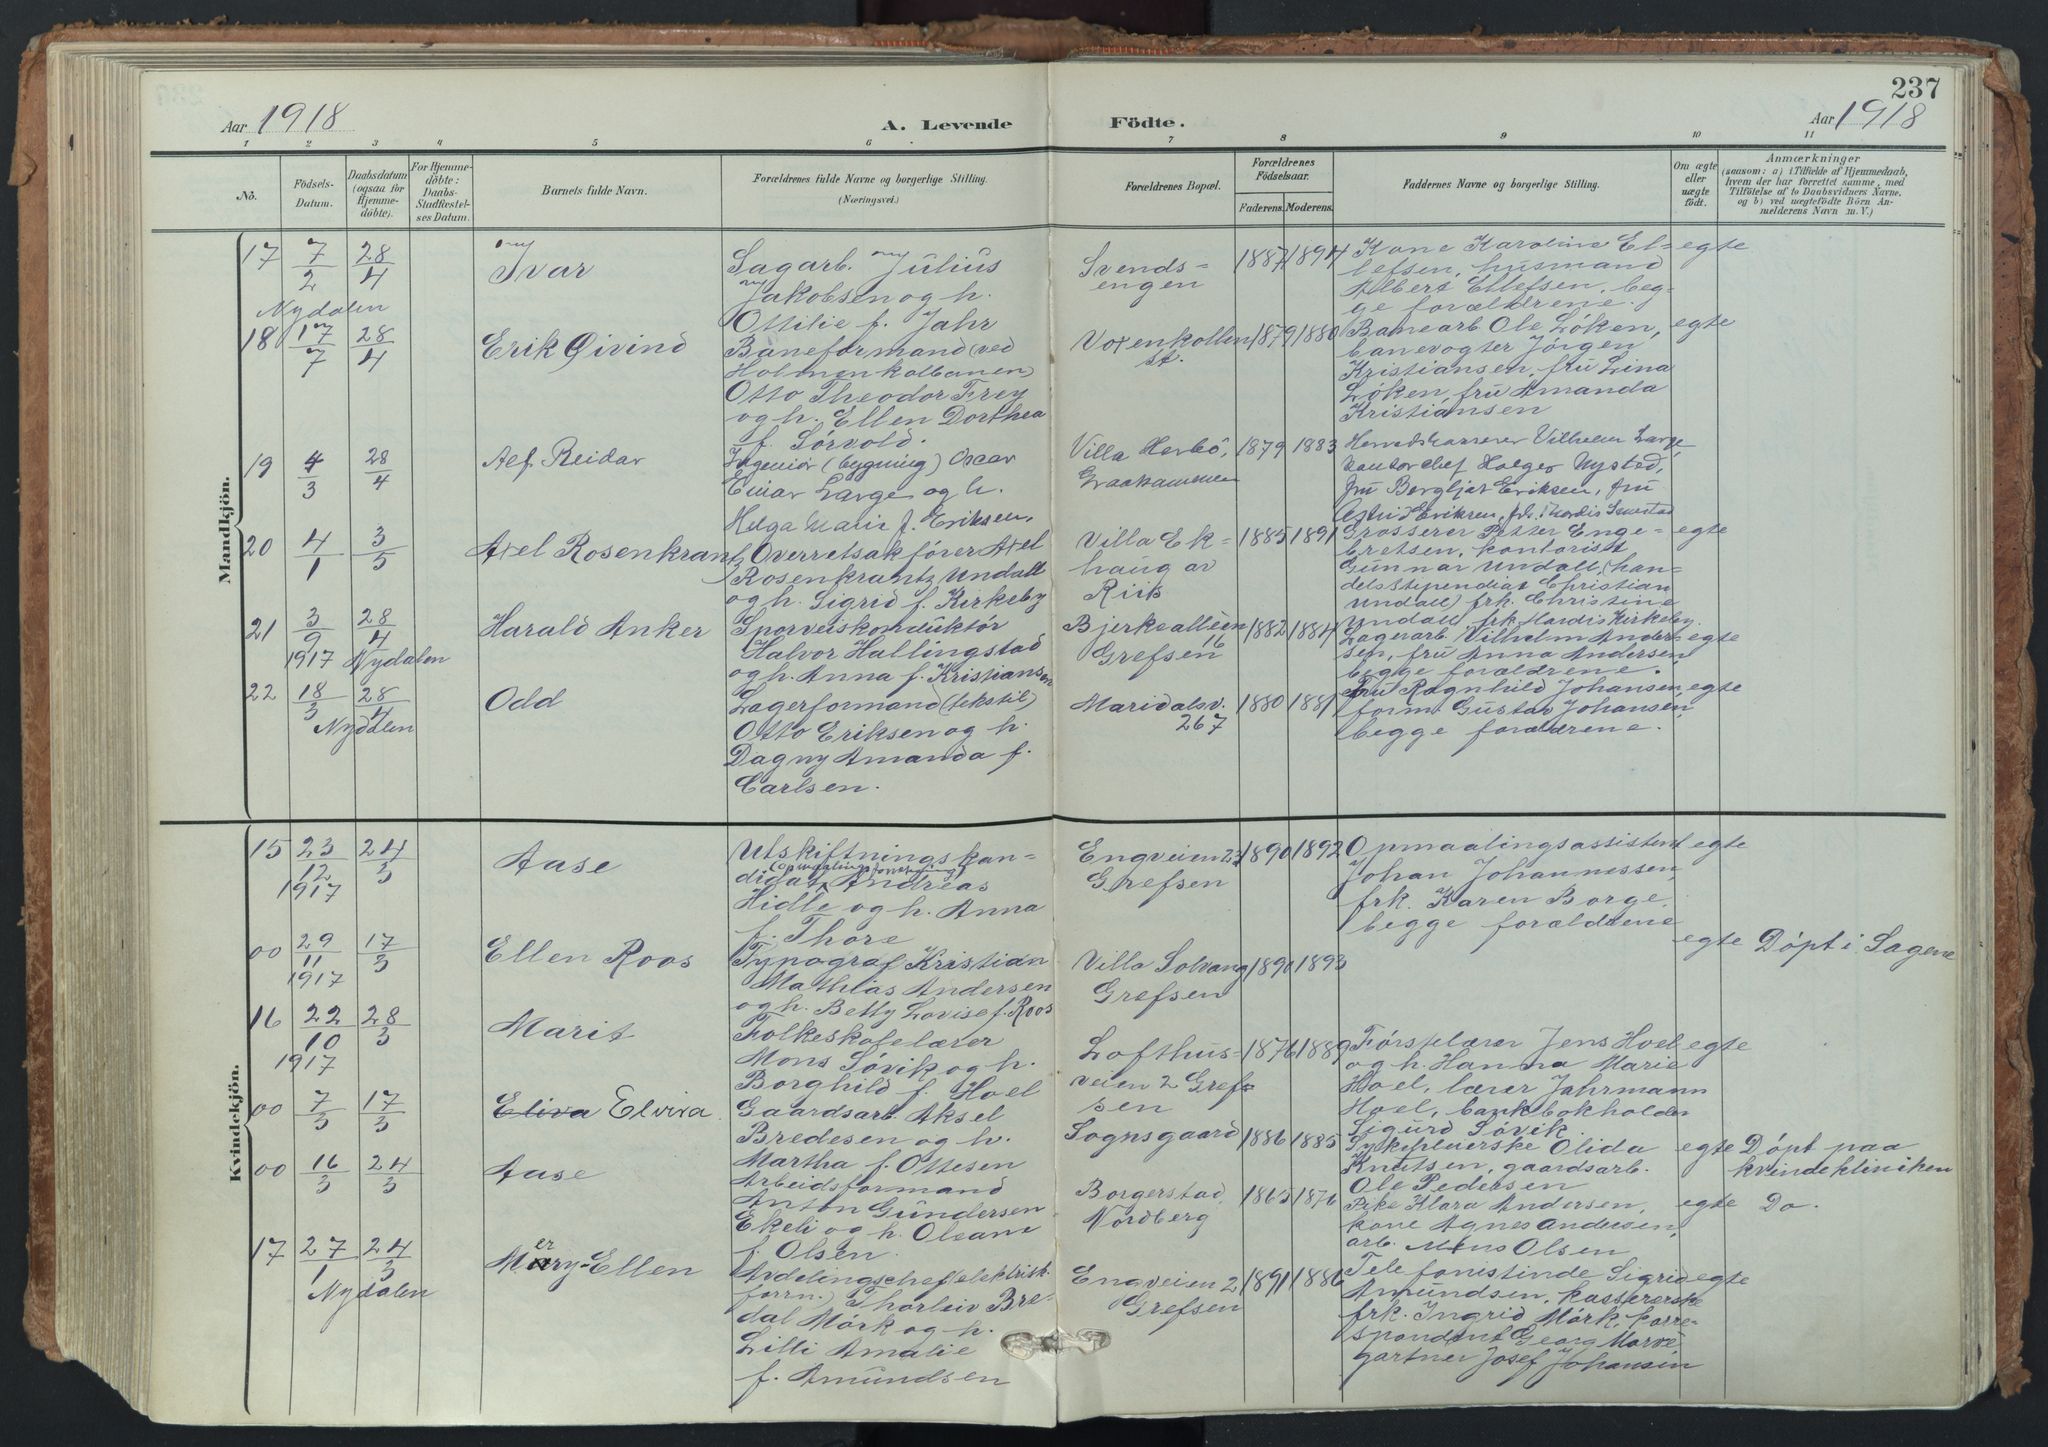 237
Aar 1918 A. Levende Födte. Aar 1918
1 2 3 4 5 6 7 8 9 10 11
No. Födsels-Datum. Daabsdatum (ogsaa for Hjemmedöbte). For Hjemmedöbte: Daabs-Stadfæstelses Datum. Barnets fulde Navn. Forældrenes fulde Navne og borgerlige Stilling. (Næringsvei.) Forældrenes Bopæl. Forældrenes Födselsaar. Faderens. Moderens. Faddernes Navne og borgerlige Stilling. Om ægte eller uægte födt. Anmærkninger (saasom: a) i Tilfælde af Hjemmedaab, hvem der har forrettet samme, med Tilföielse af to Daabsvidners Navne. og b) ved uægtefödte Börn Anmelderens Navn m. V.)
Mandkjön.
17 7/2 28/4 Nydalen
Ivar
Sagarb. Julius
Jakobsen og h.
Ottilie f. Jahr
Svends-
engen
1887 1894
Kone Karoline El-
lefsen, husmand
Albert Ellefsen, beg-
ge forældrene.
egte
18 17/7 28/4
Erik Øivind
Baneformand (ved
Holmenkolbanen)
Otto Theodor Frey
og h. Ellen Dorthea
f. Sörvold.
Voxenkollen
st.
1879 1880
Banearb Ole Løken,
banevogter Jörgen
Kristiansen, fru Lina
Løken, fru Amanda
Kristiansen
egte
19 4/3 28/4
Alf Reidar
Ingeniör (bygning) Oscar
Einar Large og h.
Helga Marie f. Eriksen.
Villa Herbö,
Graakammen
1879 1883
Herredskasserer Vilhelm Large,
kontorchef Holger Nysted,
fru Bergljot Eriksen, fru
Astrid Eriksen, frk.
20 4/1 3/5
Axel Rosenkrantz
Overretsakfører Axel
Rosenkrantz Undall
og h. Sigrid f. Kirkeby
Villa Ek-
haug av
Riis
1885 1891
Grosserer Petter Enge-
bretsen, kontorist
Gunnar Undall, (han-
delsstipendiat Christian
Undall) frk. Christine
Undall frk. Hardis Kirkeby.
egte
21 3/9 1917 28/4 Nydalen
Harald Anker
Sporveiskonduktör
Halvor Hallingstad
og h. Anna f. Kristiansen
Bjerkealleen
16
Grefsen
1882 1884
Lagerarb. Vilhelm Ander-
sen, fru Anna Andersen
begge forældrene.
egte
22 18/3 28/4 Nydalen
Odd
Lagerformand (tekstil)
Otto Eriksen og h
Dagny Amanda f.
Carlsen.
Maridalsv.
267
1880 1881
Fru Ragnhild Johansen,
form. Gustav Johansen,
begge forældrene.
egte
Kvindekjön.
15 23/12 1917 24/3
Aase
Utskiftningskan-
didat Andreas
Hidle og h. Anna
f. Thore
Engveien 23
Grefsen
1890 1892
Opmaalingsassistent
Johan Johannessen,
frk. Karen Borge,
begge forældrene
egte
00 29/11 1917 17/3
Ellen Roos
Typograf Kristian
Mathias Andersen
og h. Betty Lovise f. Roos
Villa Solvang
Grefsen
1890 1893
egte Döpt i Sagene
16 22/10 1917 28/3
Marit
Folkeskolelærer
Mons Søvik og h.
Borghild f. Hoel
Lofthus-
veien 2 Gref-
sen
1876 1889
Förstelærer Jens Hoel
og h. Hanna Marie
Hoel, lærer Jahrmann
Hoel, bankbokholder
Sigurd Søvik.
egte
00 7/3 17/3
Eliva Elvira
Gaardsarb Aksel
Bredesen og h.
Martha f. Ottesen
Sognsgaard
1886 1885
Sykepleierske Olida
Knutsen, gaardsarb.
Ole Pedersen
egte Döpt paa
kvindekliniken
00 16/3 24/3
Aase
Arbeidsformand
Anton Gundersen
Ekeli og h. Oleane
f. Olsen.
Borgerstad,
Nordberg
1865 1876
Pike Klara Andersen,
kone Agnes Andersen,
arb. Mons Olsen
egte Do.
17 27/1 24/3 Nydalen
Mery-Ellen
Avdelingschef (elektrisk
forrn.) Thorleiv Bre-
dal Mörk og h.
Lilli Amalie
f. Amundsen
Engveien 2
Grefsen
1891 1886
Telefonistinde Sigrid
Amundsen, kassererske
frk. Ingrid Mörk, korre-
spondent Georg
gartner Josef Johansen
egte